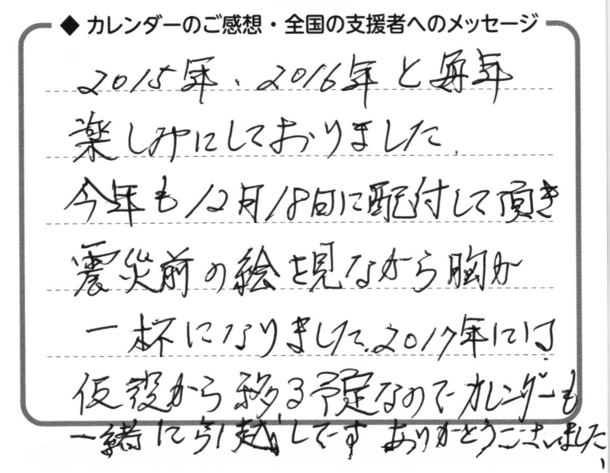 ◆ カレンダーのご感想・全国の支援者へのメッセージ
2015年、2016年と毎年
楽しみにしておりました。
今年も12月18日に配付して頂き
震災前の絵を見ながら胸が
一杯になりました。2017年には
仮設から移る予定なのでカレンダーも
一緒に引越しです ありがとうございました